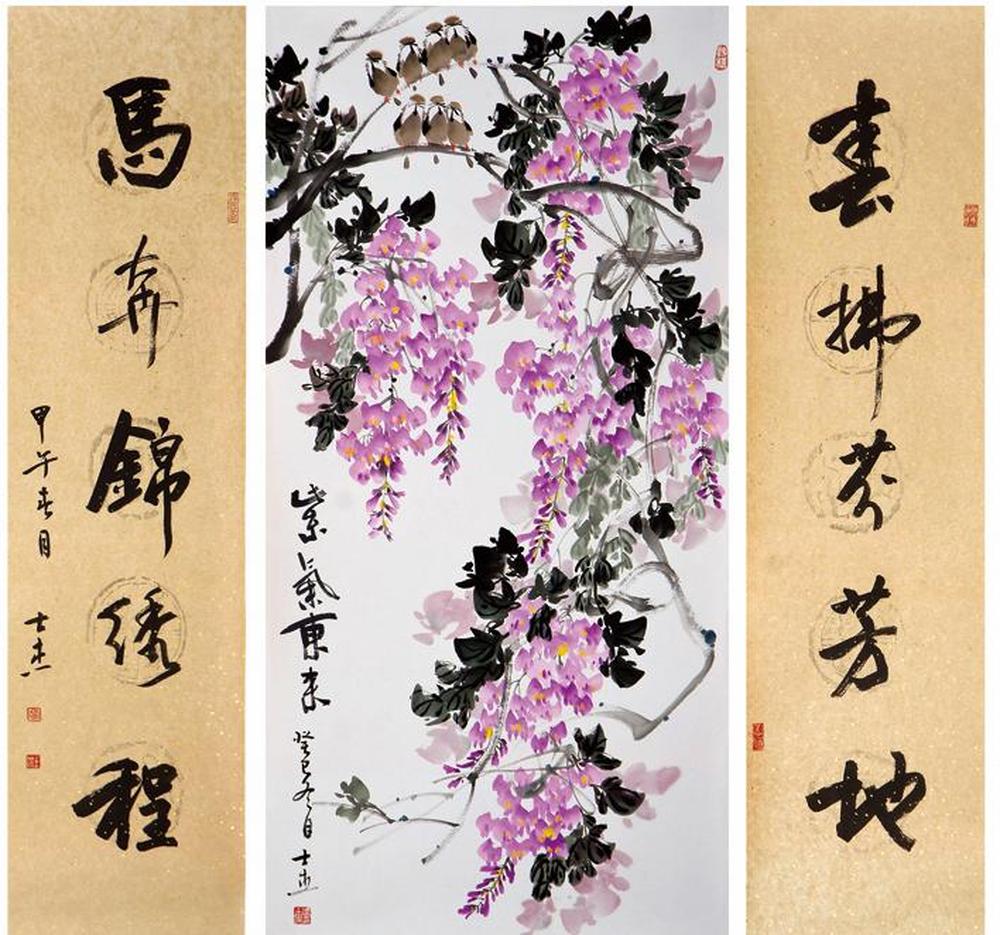 春拂芬芳地
紫氣東来
癸巳冬日 士杰
馬奔錦绣程
甲午春月 士杰